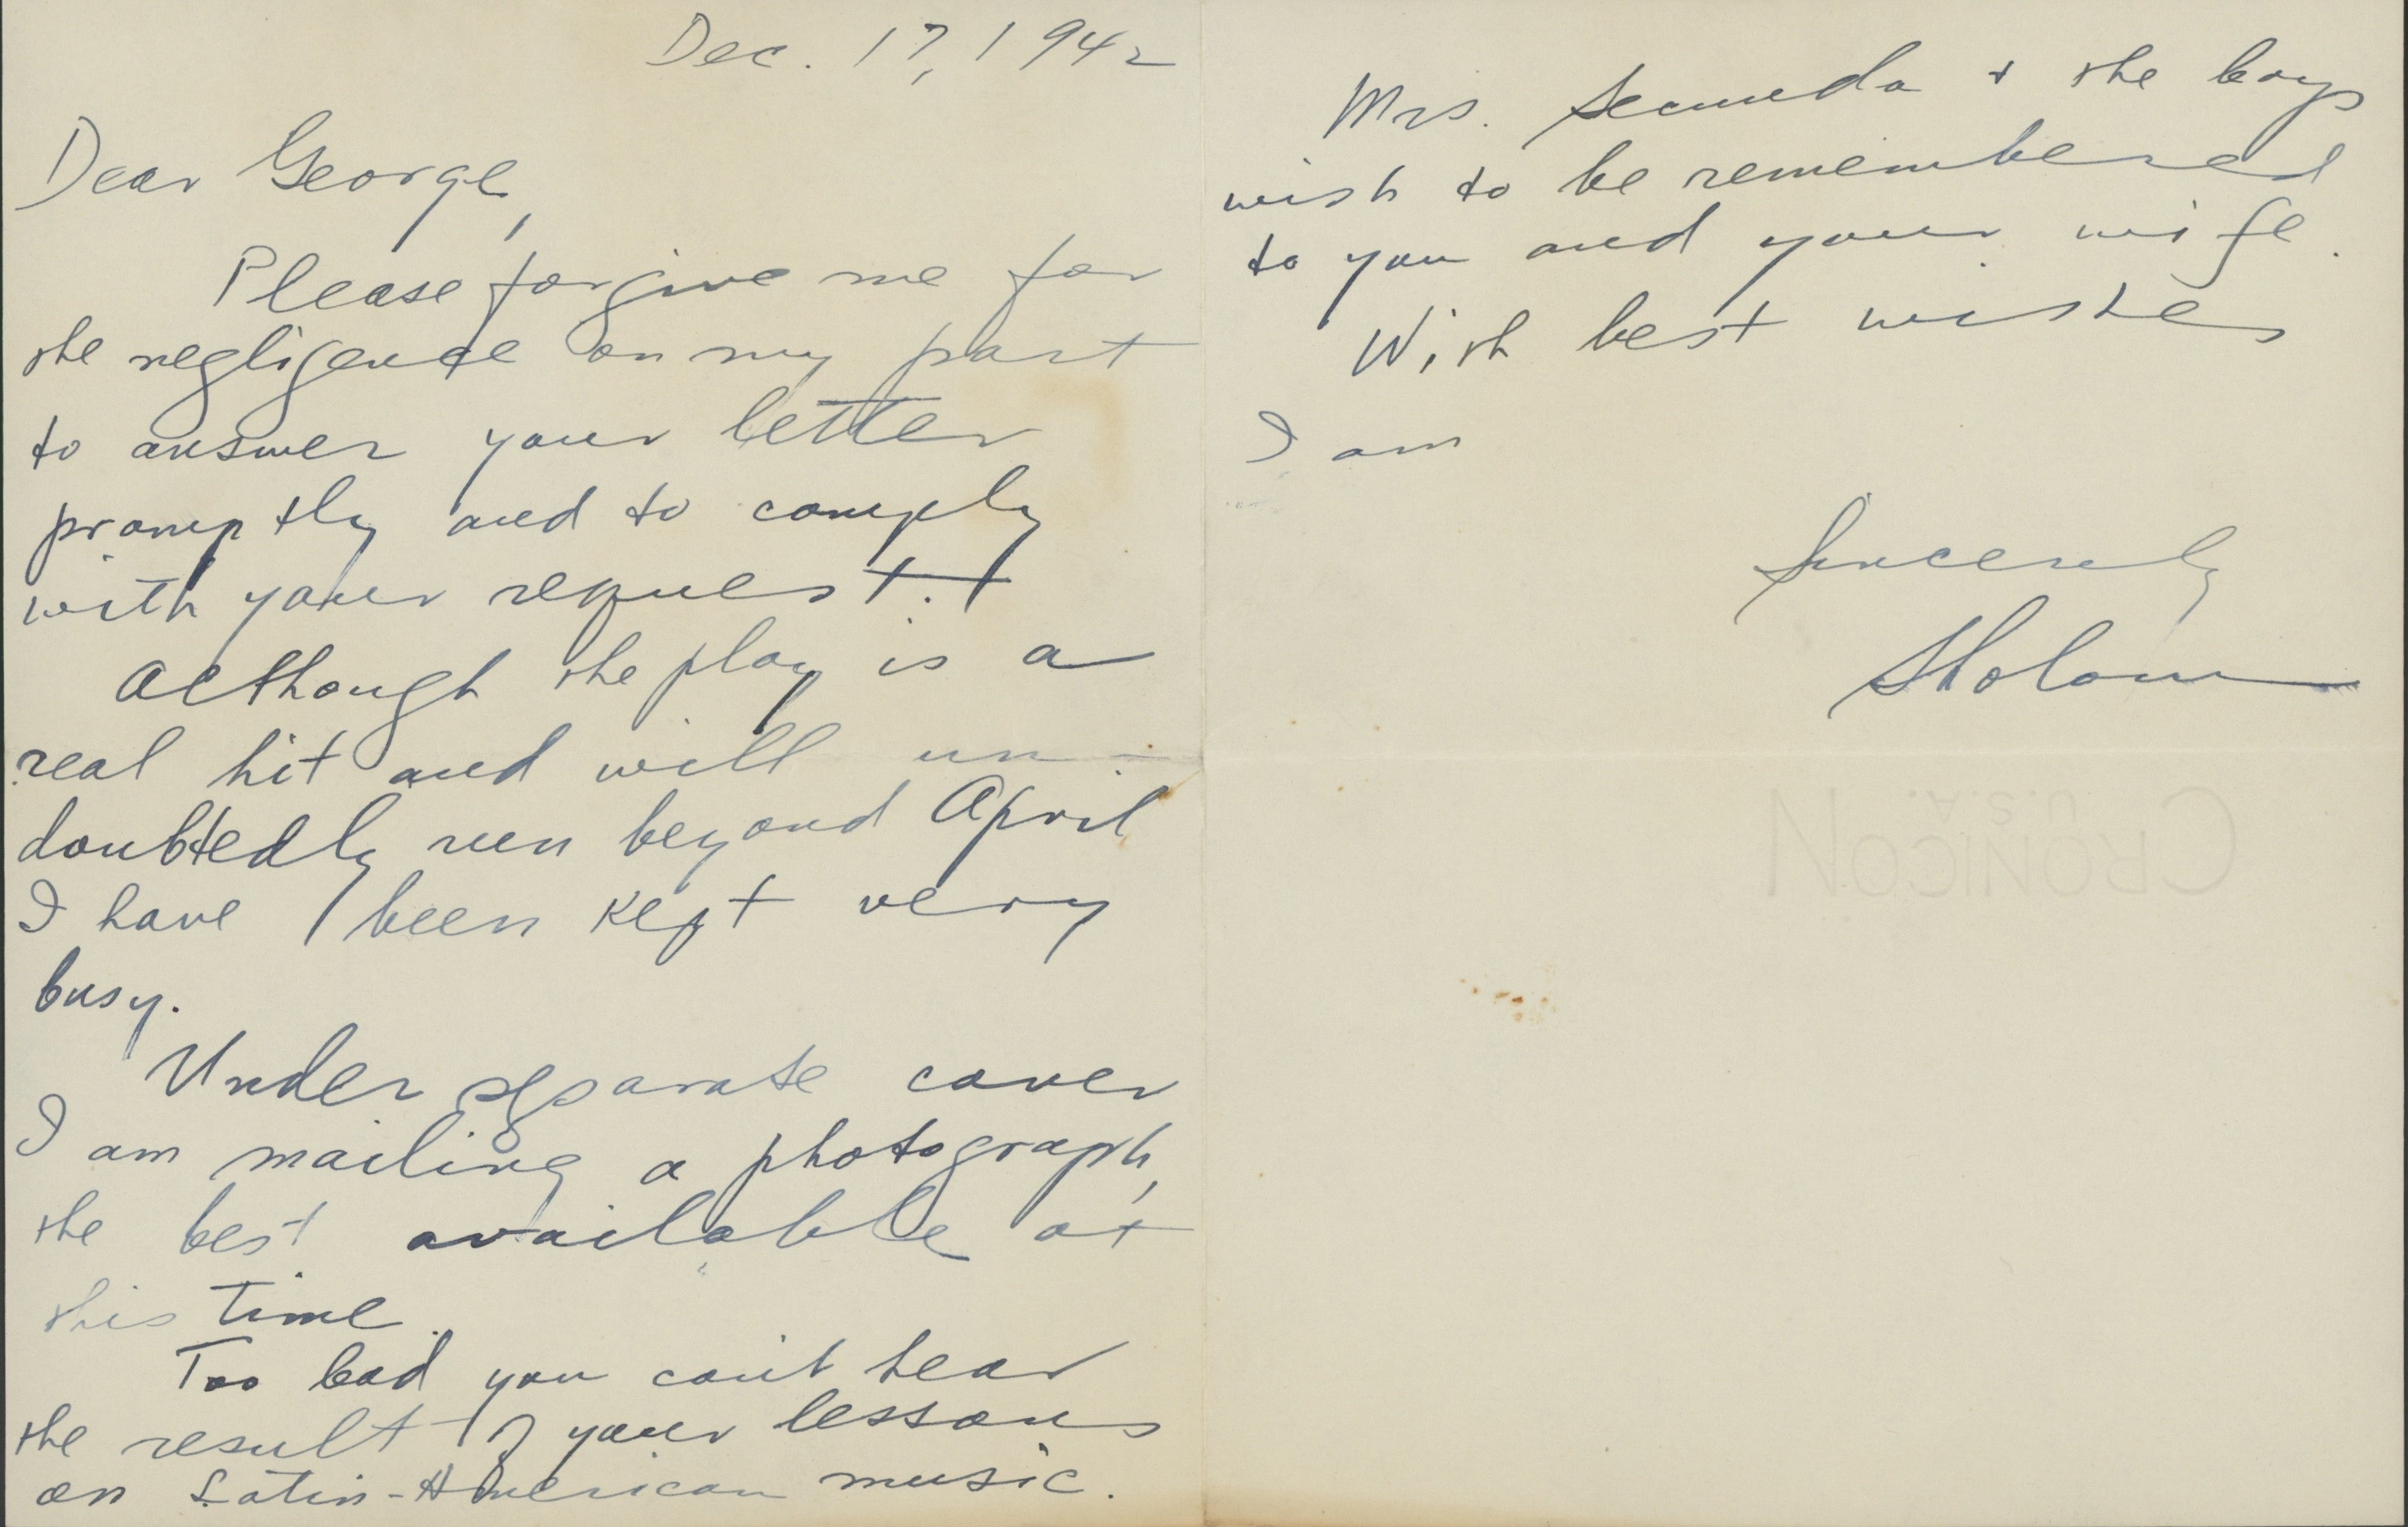 Dec. 17, 1942
Dear George,
Please forgive me for
the negligence on my part
to answer your letter
promptly and to comply
with your request.
Although the play is a
real hit and will un-
doubtedly run beyond April
I have been kept very
busy.
Under separate cover
I am mailing a photograph,
the best available at
this time.
Too bad you can't hear
the result of your lessons
on Latin-American music.
Mrs. Secunda + the boys
wish to be remembered
to you and your wife.
With best wishes
I am
Sincerely
Sholom
CRONICON
U.S.A.